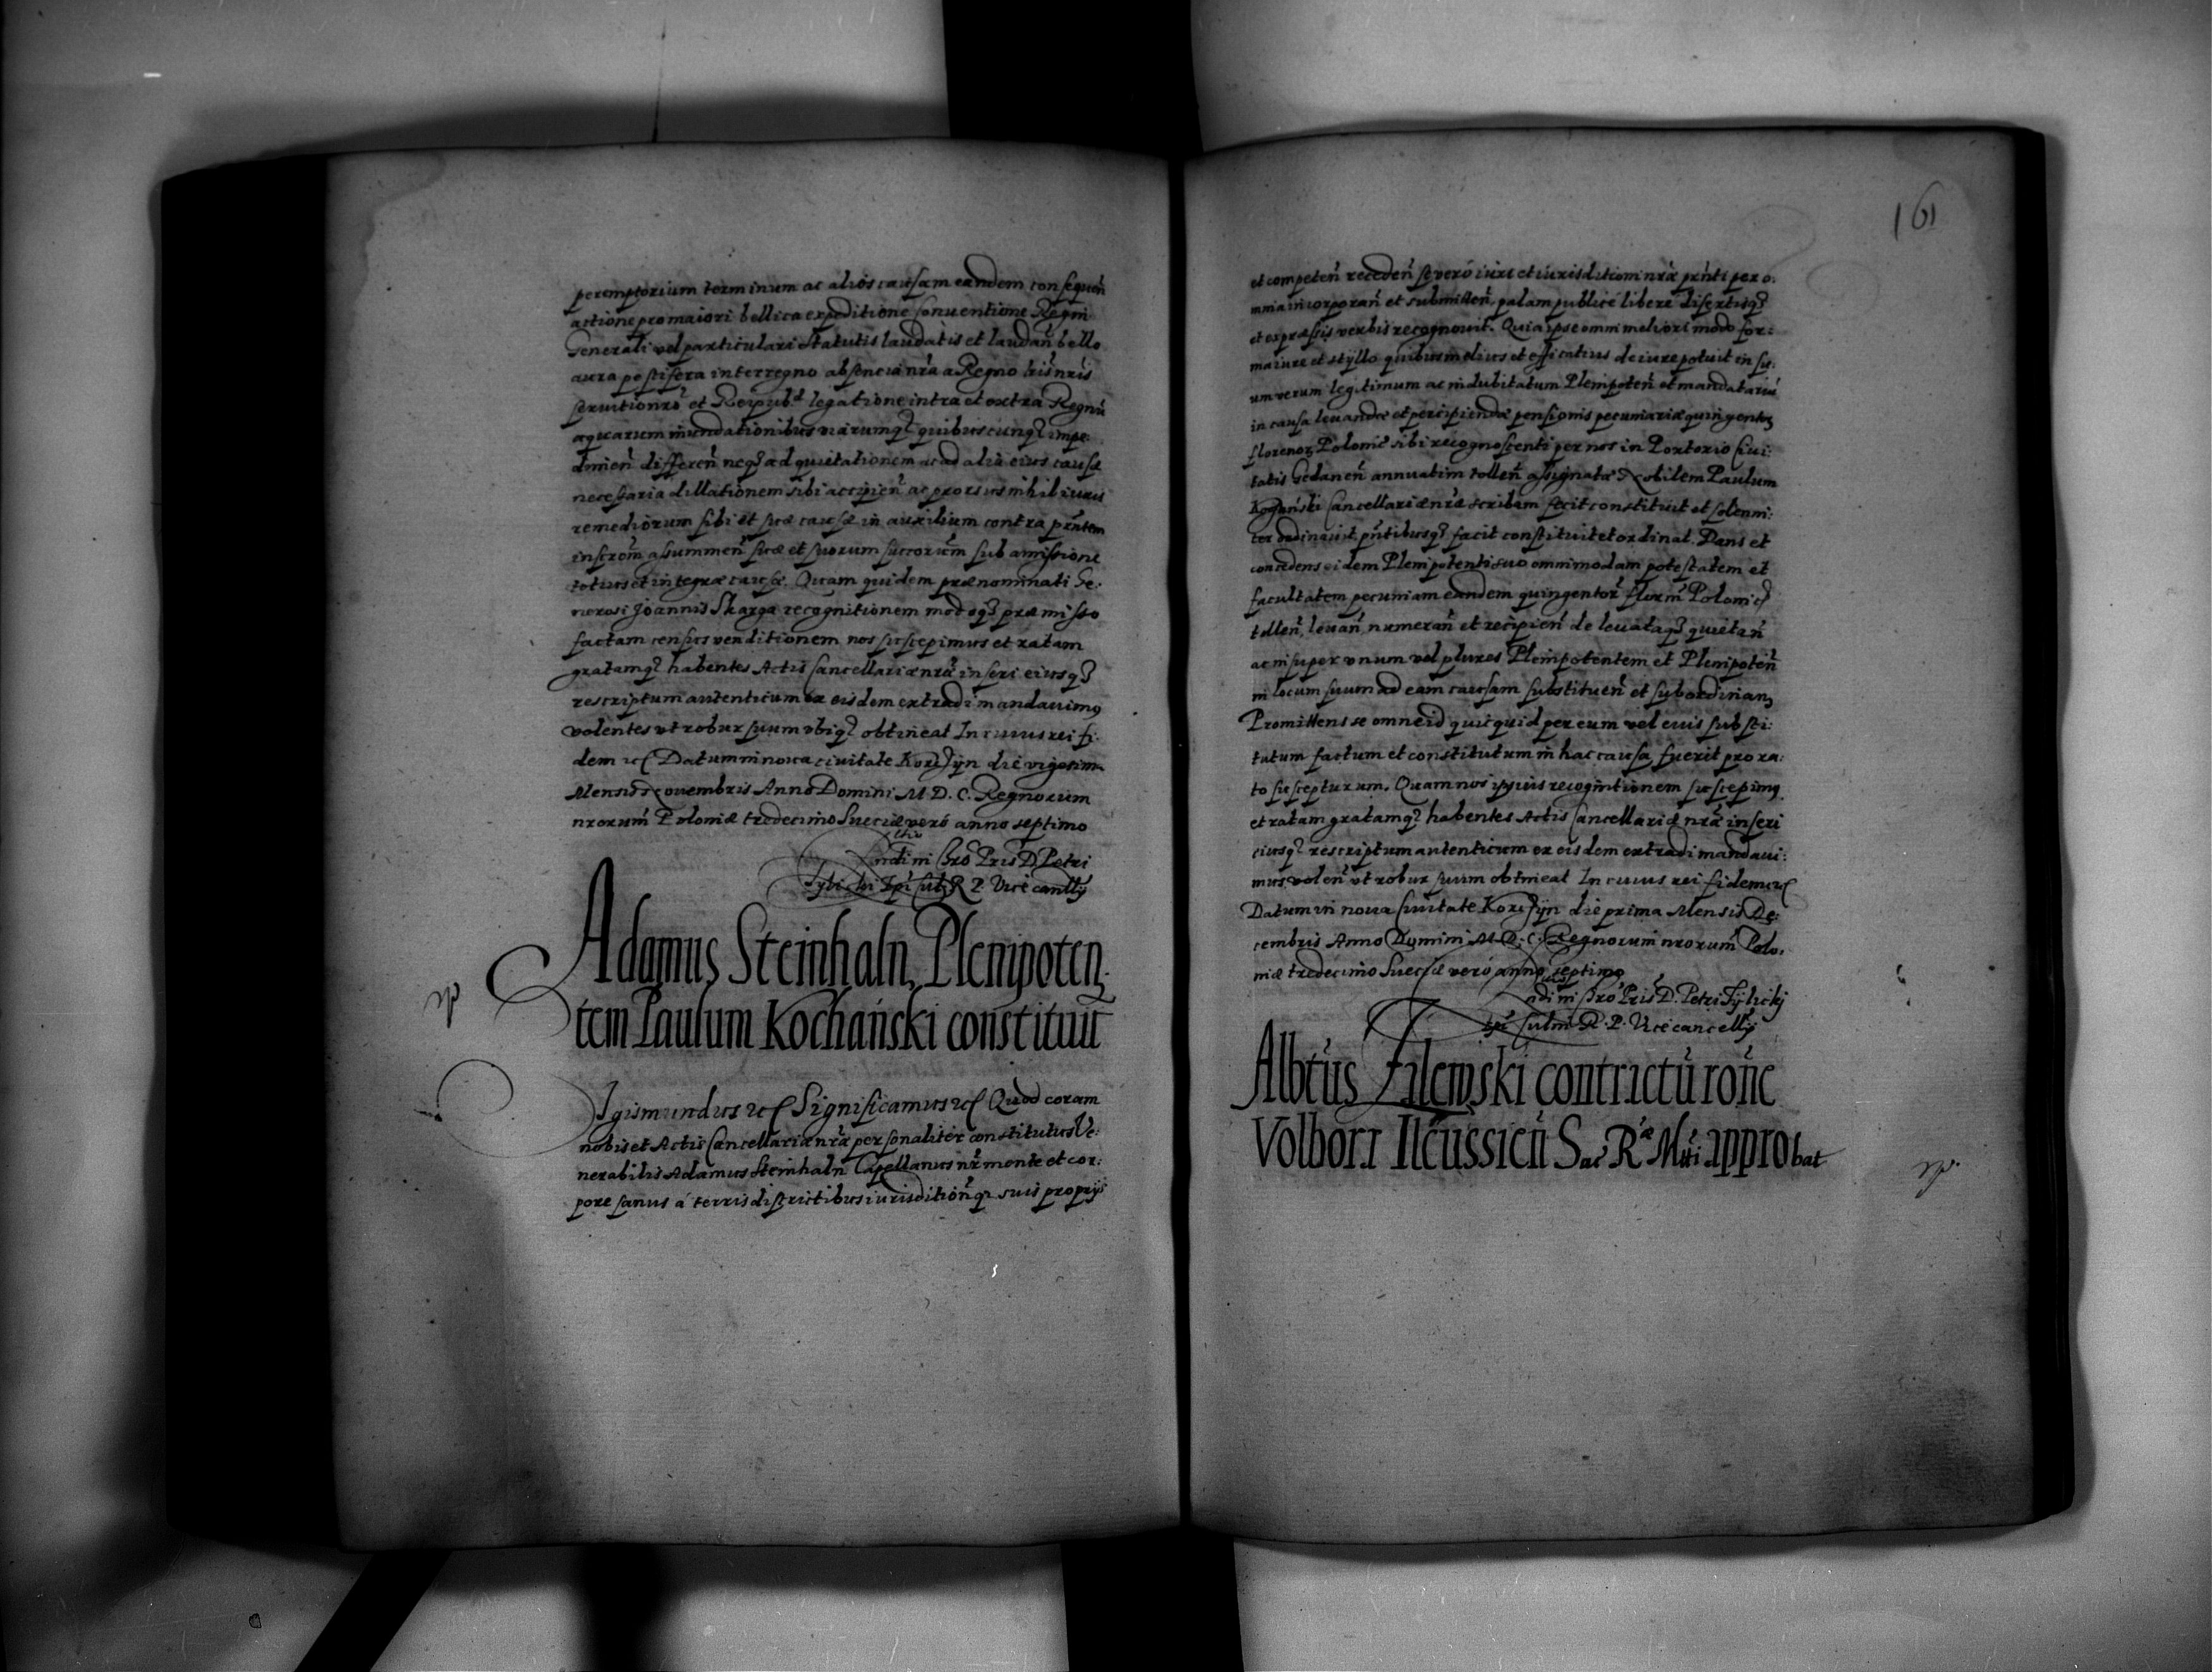 peremptorium terminum ac alios causam eandem consequen̄
actione pro maiori bellica expeditione Conuentione Regni
Generali vel particulari Statutis laudatis et laudan̄ bello
aura pestifera interregno absencia nrā a Regno his nrīs
seruitio nrō et Reipub. legatione intra et extra Regnū
aquarum inundationibus viarumq̨ quibuscunq̨ impe:
dimen̄ differen̄ neq̨ ad quietationem ac ad aliā eius causæ
necessaria dillationem sibi accipien̄ ac prorsus nihil iuris
remediorum sibi et suæ causæ in auxilium contra prn̄tem
inscrōm assummen̄ suæ et suorum succorum̄ sub amissione
totius et integræ causæ. Quam quidem prænominati Ge.
nerosi Joannis Skarga recognitionem modoq̨ præmisso
factam census venditionem nos suscepimus et ratam
gratamq̨ habentes Actis Cancellariæ nrǣ inseri eiusq̨
rescriptum autenticum ex eisdem extradi mandauimus
volentes vt robur suum vbiq̨ obtineat In cuius rei fi:
dem etc Datum in noua ciuitate Korczÿn die vigesima
Mensis Nouembris Anno Domini M.D.C. Regnorum
nrorum̄ Poloniæ tredecimo Sueciæ veró anno septimo
ndi in Chrō Pris D. Petri
Tylicki Epī Cul. R. P. Vicecancellÿ
Adamus Steinhaln, Plenipoten,
tem Paulum Kochański constituit
Sigismundus etc Significamus etc Quod coram
nobis et Actis Cancellariæ nrǣ personaliter constitutus Ve:
nerabilis Adamus Steinhaln Capellanus nr̄ mente et cor:
pore sanus á terris districtibus iurisdition̄q̨ suis proprÿs
161
et competen̄ receden̄ se veró iuri et iurisditioni nrǣ prn̄ti per o:
mnia incorporan̄ et submitten̄, palam publice libere disertisq̨
et expræssis verbis recognouit. Quia ipse omni meliori modo for:
ma iure et stÿllo quibus melius et efficatius de iure potuit in su:
um verum legitimum ac indubitatum Plenipoten̄ et mandatariū
in causa leuandæ et percipiendæ pensionis pecuniariæ quingentos
florenor Polonic sibi recognoscenti per nos in Portorio Ciui:
tatis Gedanen̄ annuatim tollen̄ assignatæ Nobilem Paulum
Kochański Cancellariæ nrǣ scribam fecit constituit et solenni:
ter ordinauit prn̄tibusq̨ facit constituit et ordinat. Dans et
concedens eidem Plenipotenti suo omnimodam potestatem et
facultatem pecuniam eandem quingentor̄ flor̄m̄ Polonic
tollen̄, leuan̄, numeran̄ et recipien̄ de leuataq̨ quietan̄
ac insuper vnum vel plures Plenipotentem et Plenipoten̄
in locum suum ad eam causam substituen̄ et subordinan̄
Promittens se omne id quicquid per eum vel eius substi:
tutum factum et constitutum in hac causa fuerit pro ra:
to suscepturum. Quam nos ipsius recognitionem suscepimus
et ratam gratamq̨ habentes Actis Cancellariæ nrǣ inseri
eiusq̨ rescriptum autenticum ex eisdem extradi mandaui:
mus volen̄ vt robur suum obtineat In cuius rei fidem etc
Datum in noua Ciuitate Korczÿn die prima Mensis De:
cembris Anno Domini M.D.C. Regnorum nrorum̄ Polo:
niæ tredecimo Sueciæ veró anno septimo
ndi in Chrō Pris D. Petri Tÿlickj
Epī Culm̄ R. P. Vicecancellÿ
Albtūs Filewski contrictū ronē
Volbori Ilcussien̄ Sac Ræ Mtti approbat